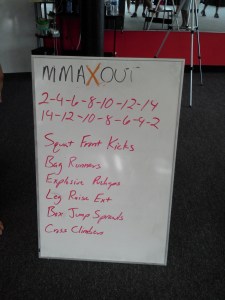 MMAXOUT
2-4-6-8-10-12-14
14-12-10-8-6-4-2
Squat Front Kicks
Bag Runners
Explosive Pushups
Leg Raise Ext
Box Jump Sprawls
Cross Climbers